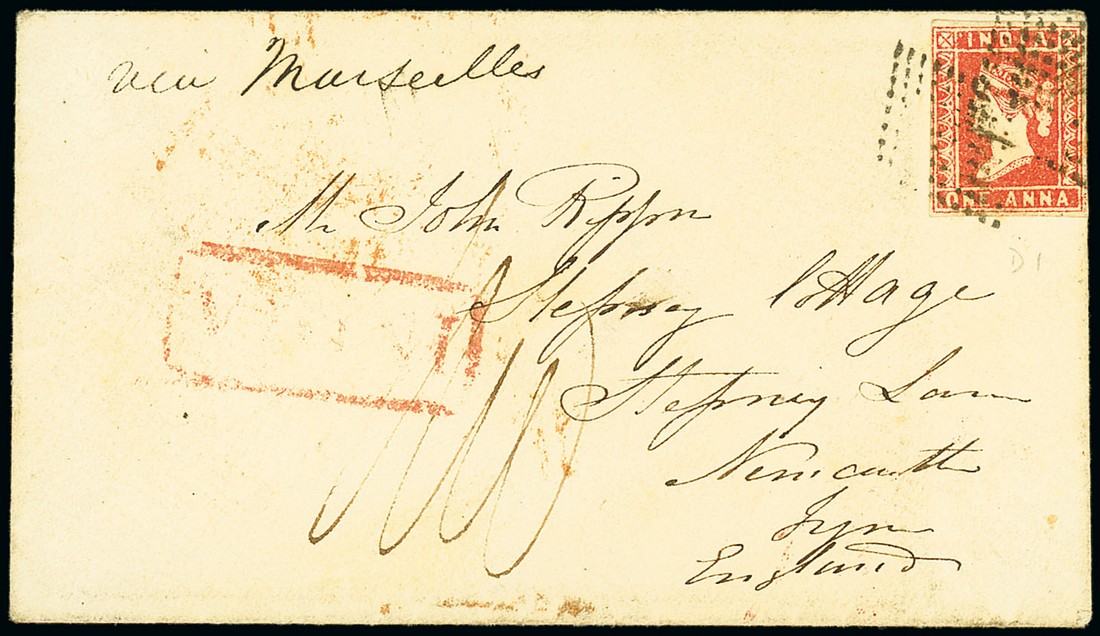 via Marseilles
INDIA
ONE ANNA
D1
Mr John Rippon
Stepney Cottage
Stepney Lane
Newcastle
Tyne
England